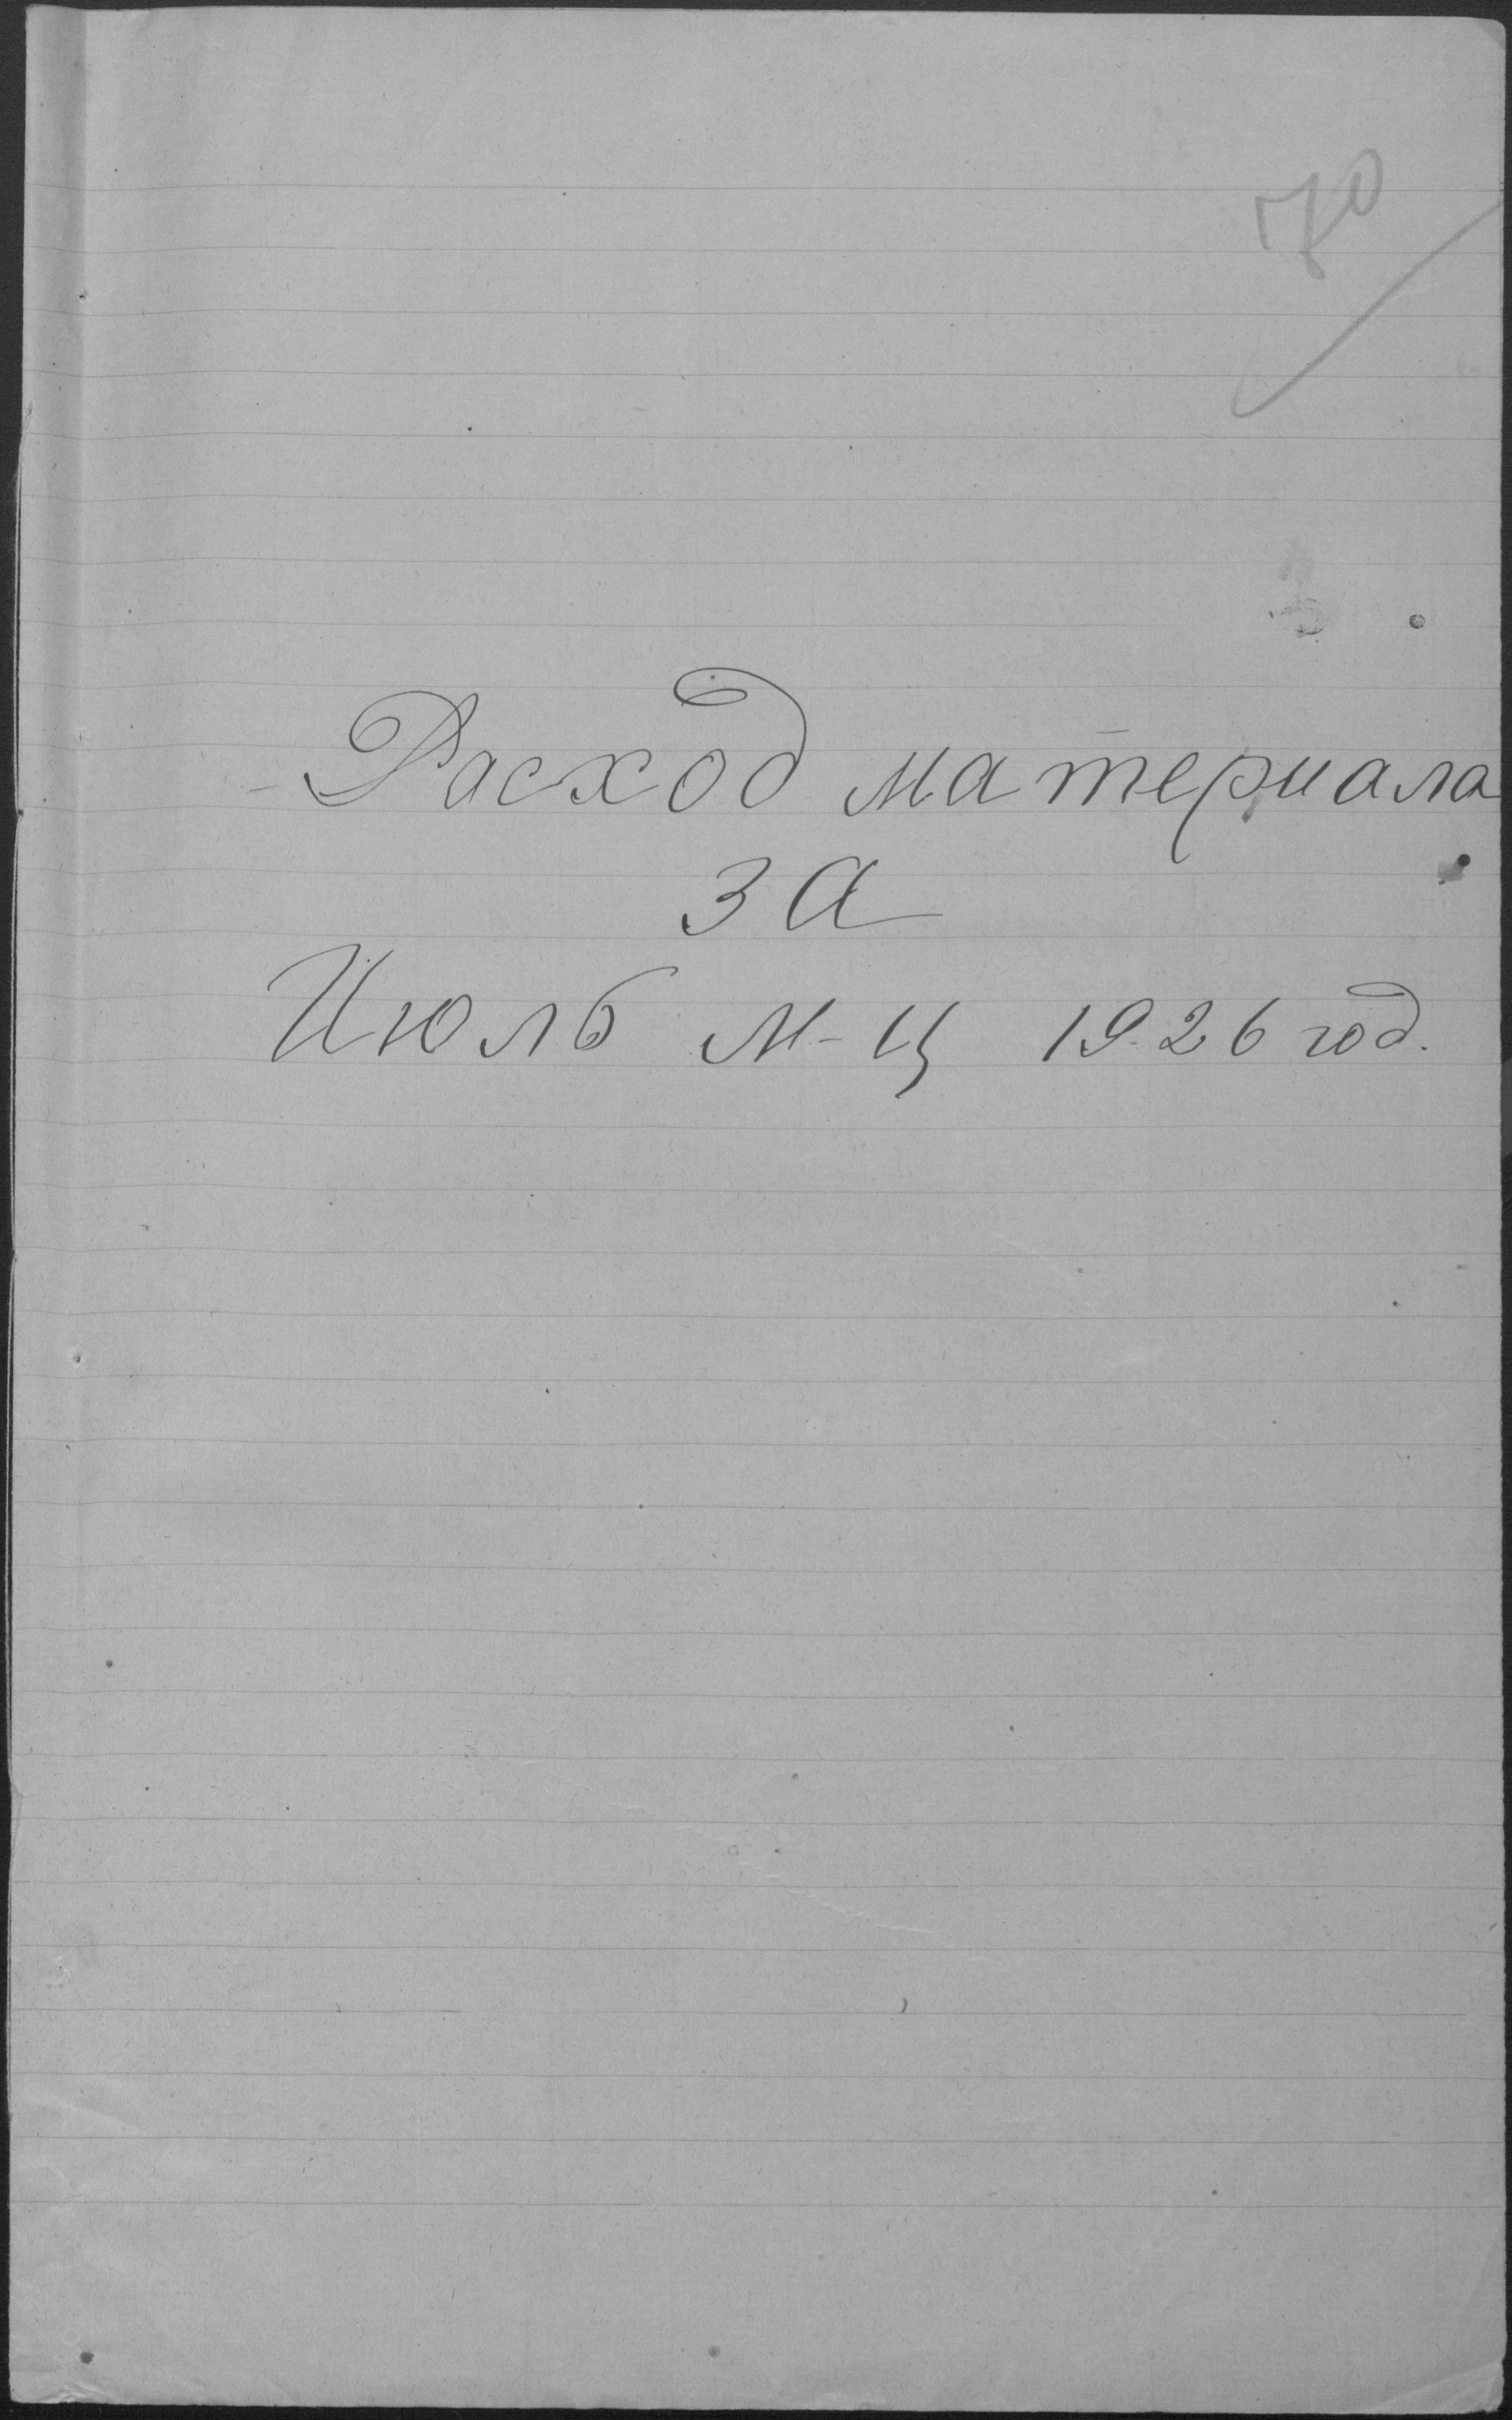 70
Расход материала
за
Июль м-ц 1926 год.